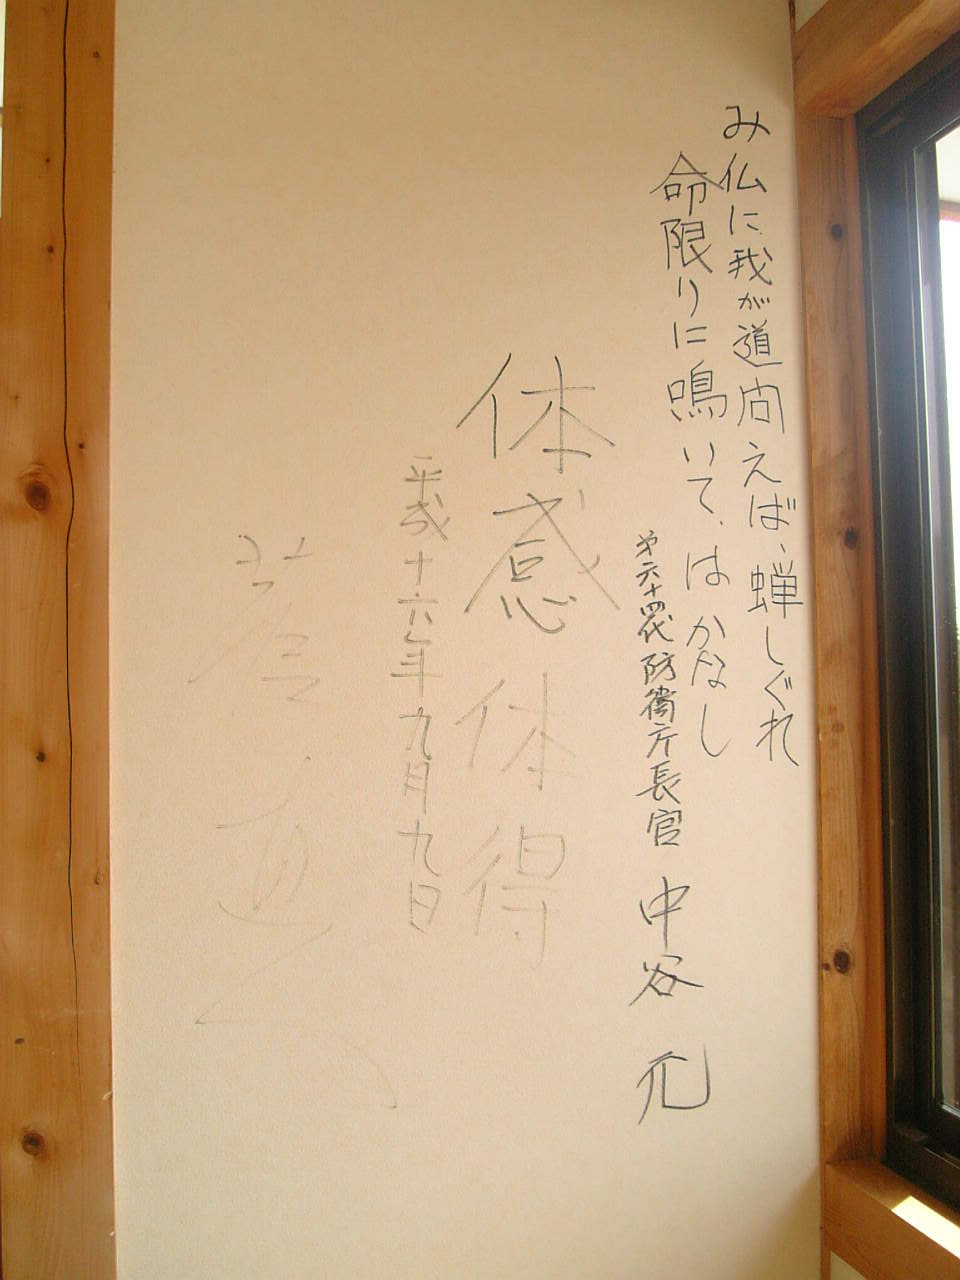 み仏に我が道問えば、蝉しぐれ
命限りに鳴いて、はかなし
第六十四代防衛庁長官 中谷元
体感体得
平成十六年九月九日
菅直人